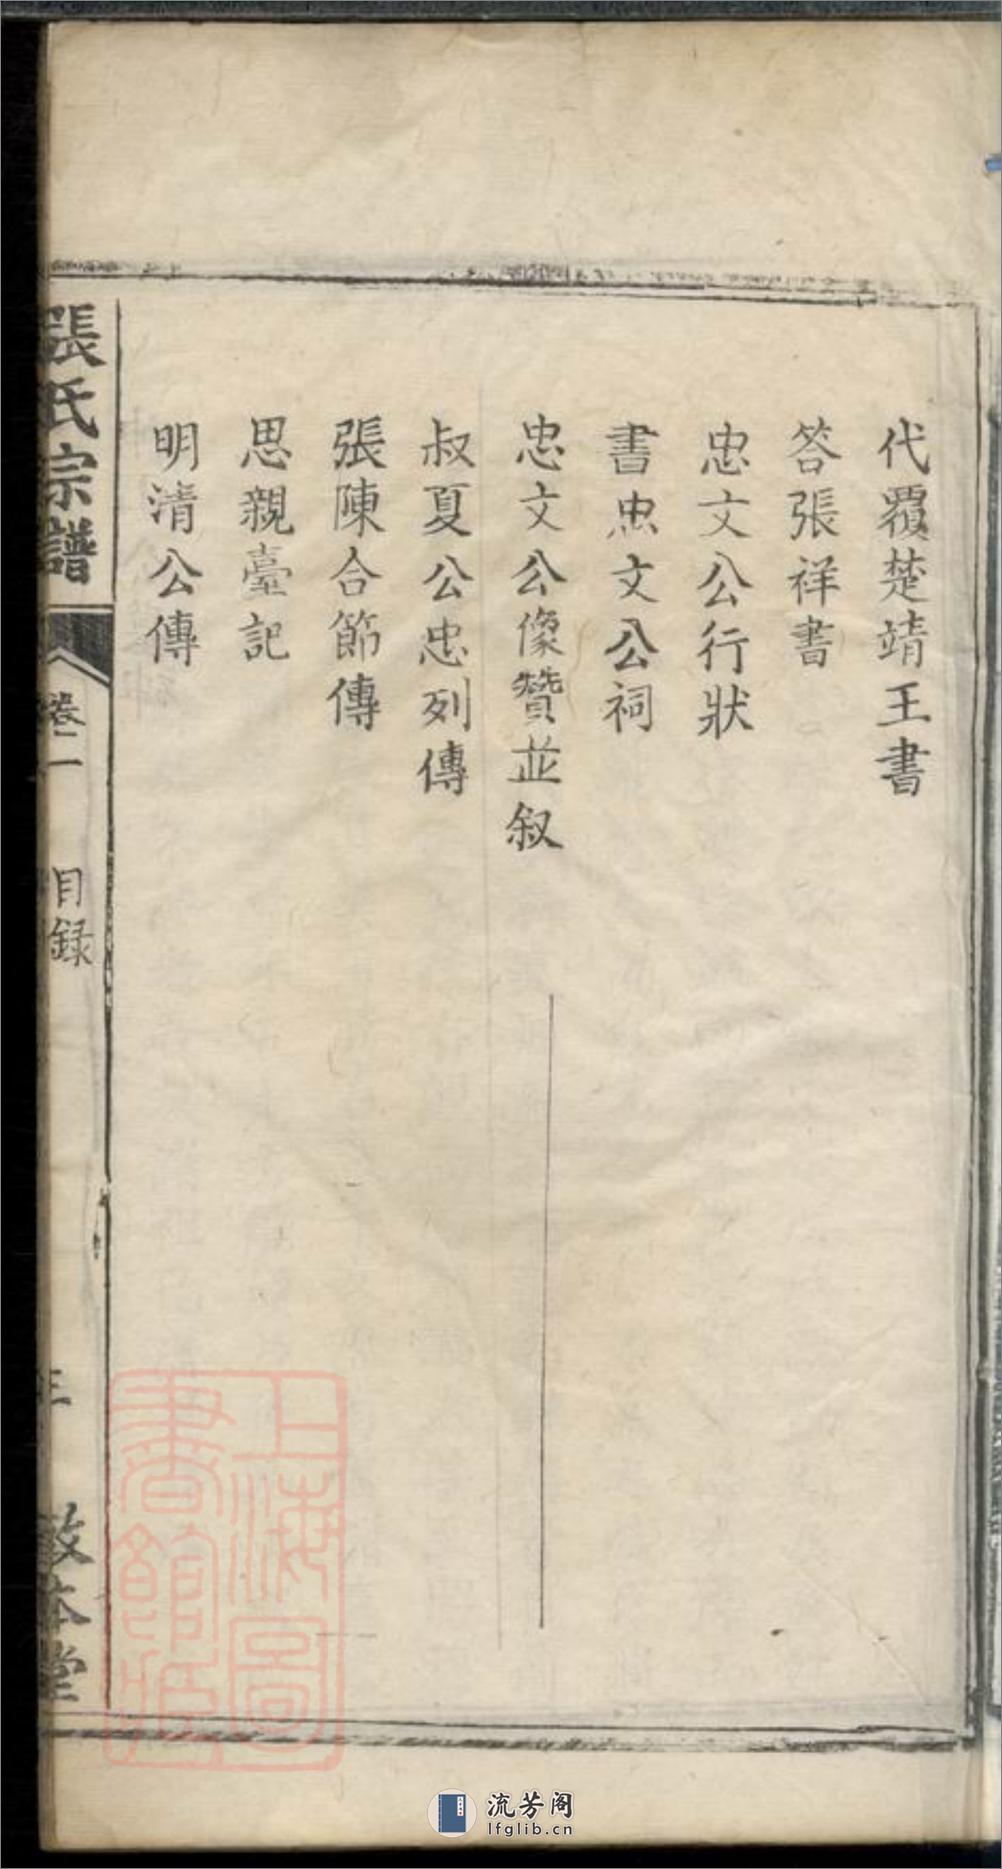 代覆楚靖王書
答張祥書
忠文公行狀
書忠文公祠
忠文公像贊並叙
叔夏公忠列傳
張陳合節傳
思親臺記
明清公傳
張氏宗譜
卷二
目錄
堂
上海圖
書館藏
流芳阁
lfglib.cn